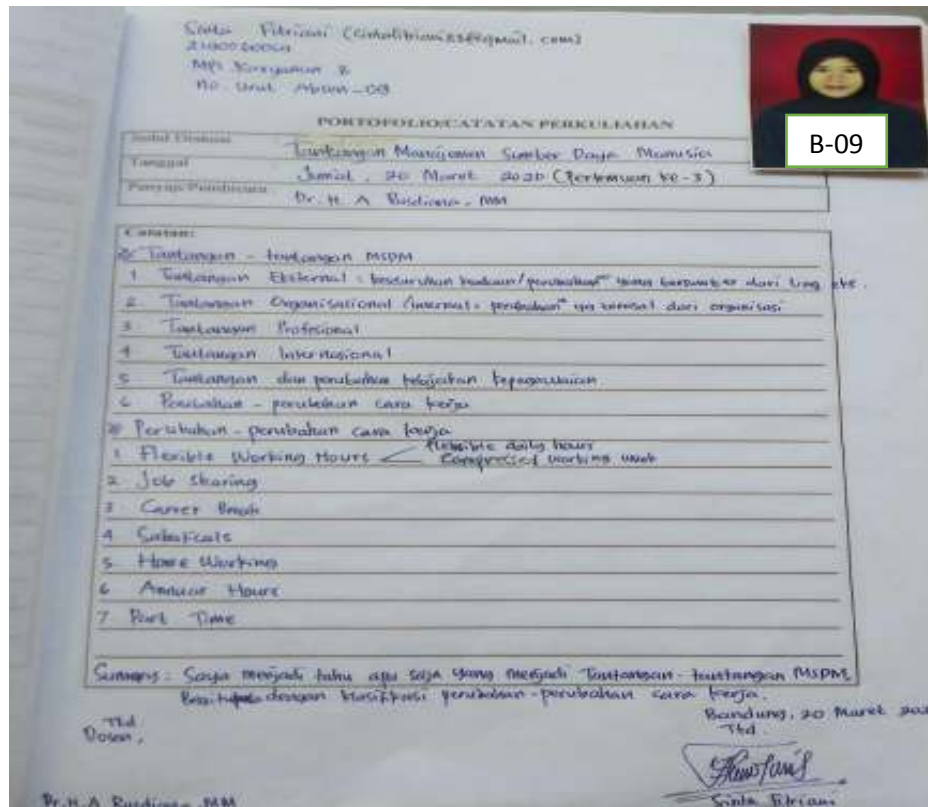 Sinta Fitriani
MPI Karyawan B
No. Urut Absen-09
B-09
PORTOFOLIO/CATATAN PERKULIAHAN
Judul Diskusi
Tantangan Manajemen Sumber Daya Manusia
Tanggal
Jumat, 20 Maret 2020 (Pertemuan ke-3)
Dr. H. A Rusdiana, MM
Catatan:
Tantangan - tantangan MSDM
1 Tantangan Eksternal : yang bersumber dari ling eks.
2 Tantangan Organisasional /internal : perubahan" yg berasal dari organisasi
3 Tantangan Profesional
4 Tantangan Internasional
5 Tantangan dan perubahan kebijakan kepegawaian
6 Perubahan - perubahan cara kerja
Perubahan - perubahan cara kerja
1 Flexible Working Hours
Flexible daily hour
Compressed working week
2 Job Sharing
3 Career Break
4 Sabaticals
5 Home Working
6 Annuar Hours
7 Part Time
Summary : Saya menjadi tahu apa saja yang menjadi Tantangan - tantangan MSDM,
dengan klasifikasi perubahan-perubahan cara kerja.
Bandung, 20 Maret
Ttd
Ttd
Dosen,
Dr. H. A Rusdiana, MM
Sinta Fitriani